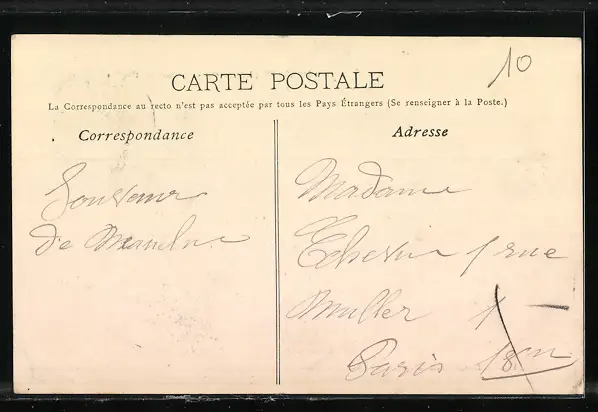 10
CARTE POSTALE
La Correspondance au recto n'est pas acceptée par tous les Pays Étrangers (Se renseigner à la Poste.)
Correspondance
Adresse
Souvenir
de
Madame
1 rue
Muller 1
Paris 18me